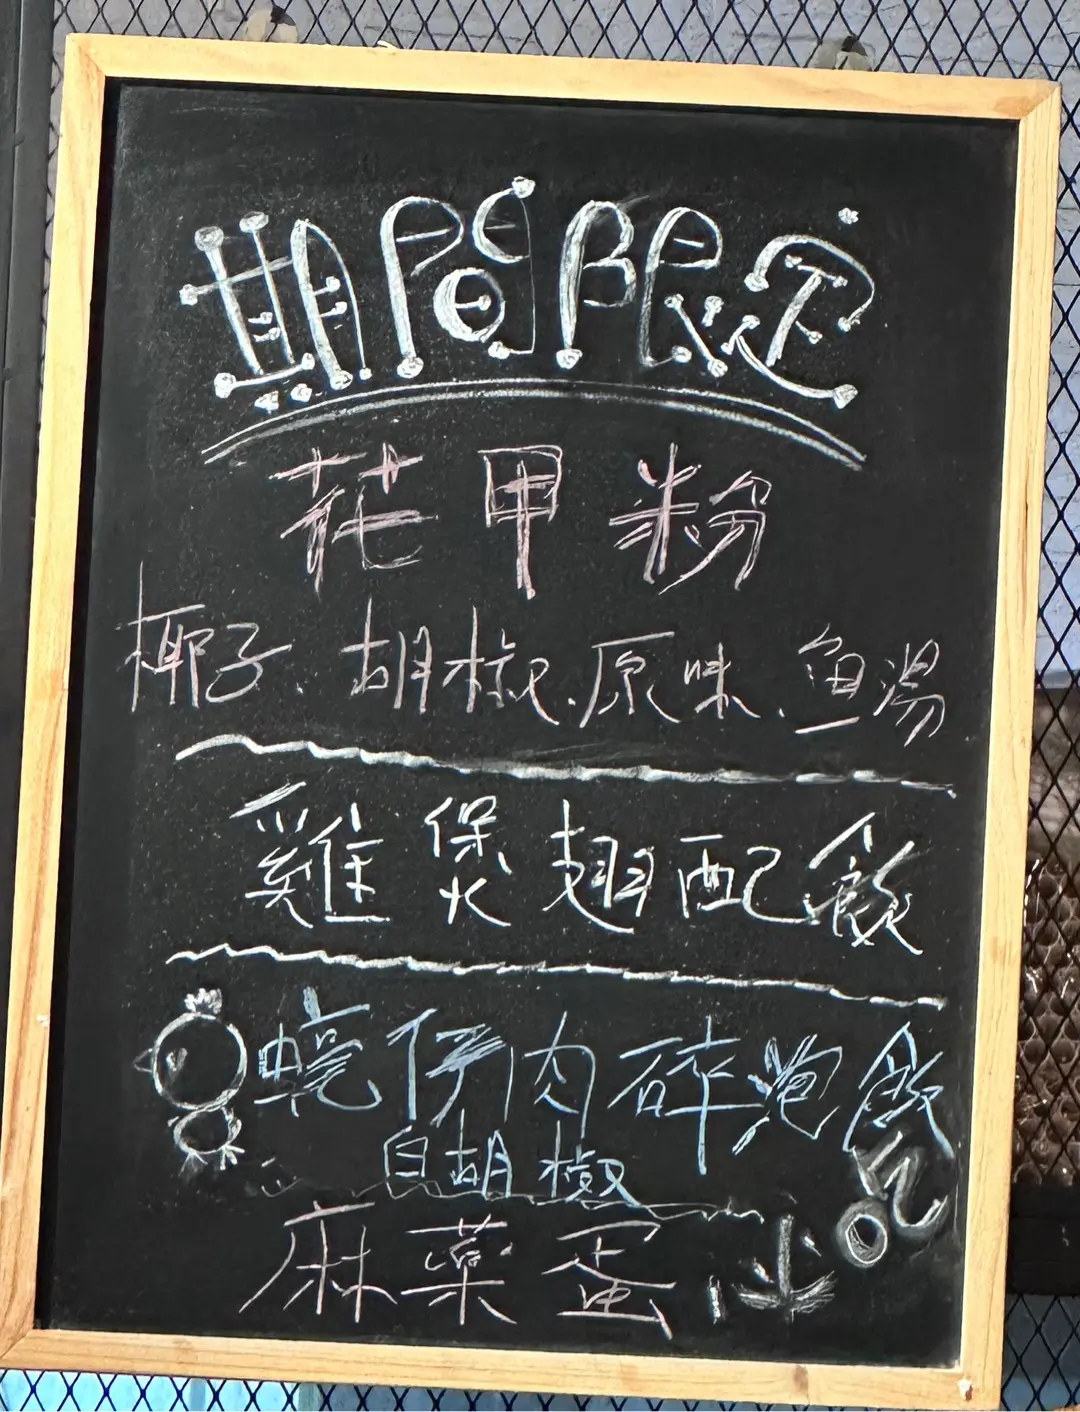 期間限定
花甲粉
椰子、胡椒、原味、魚湯
雞煲翅配飯
蠔仔肉碎泡飯
白胡椒
麻藥蛋